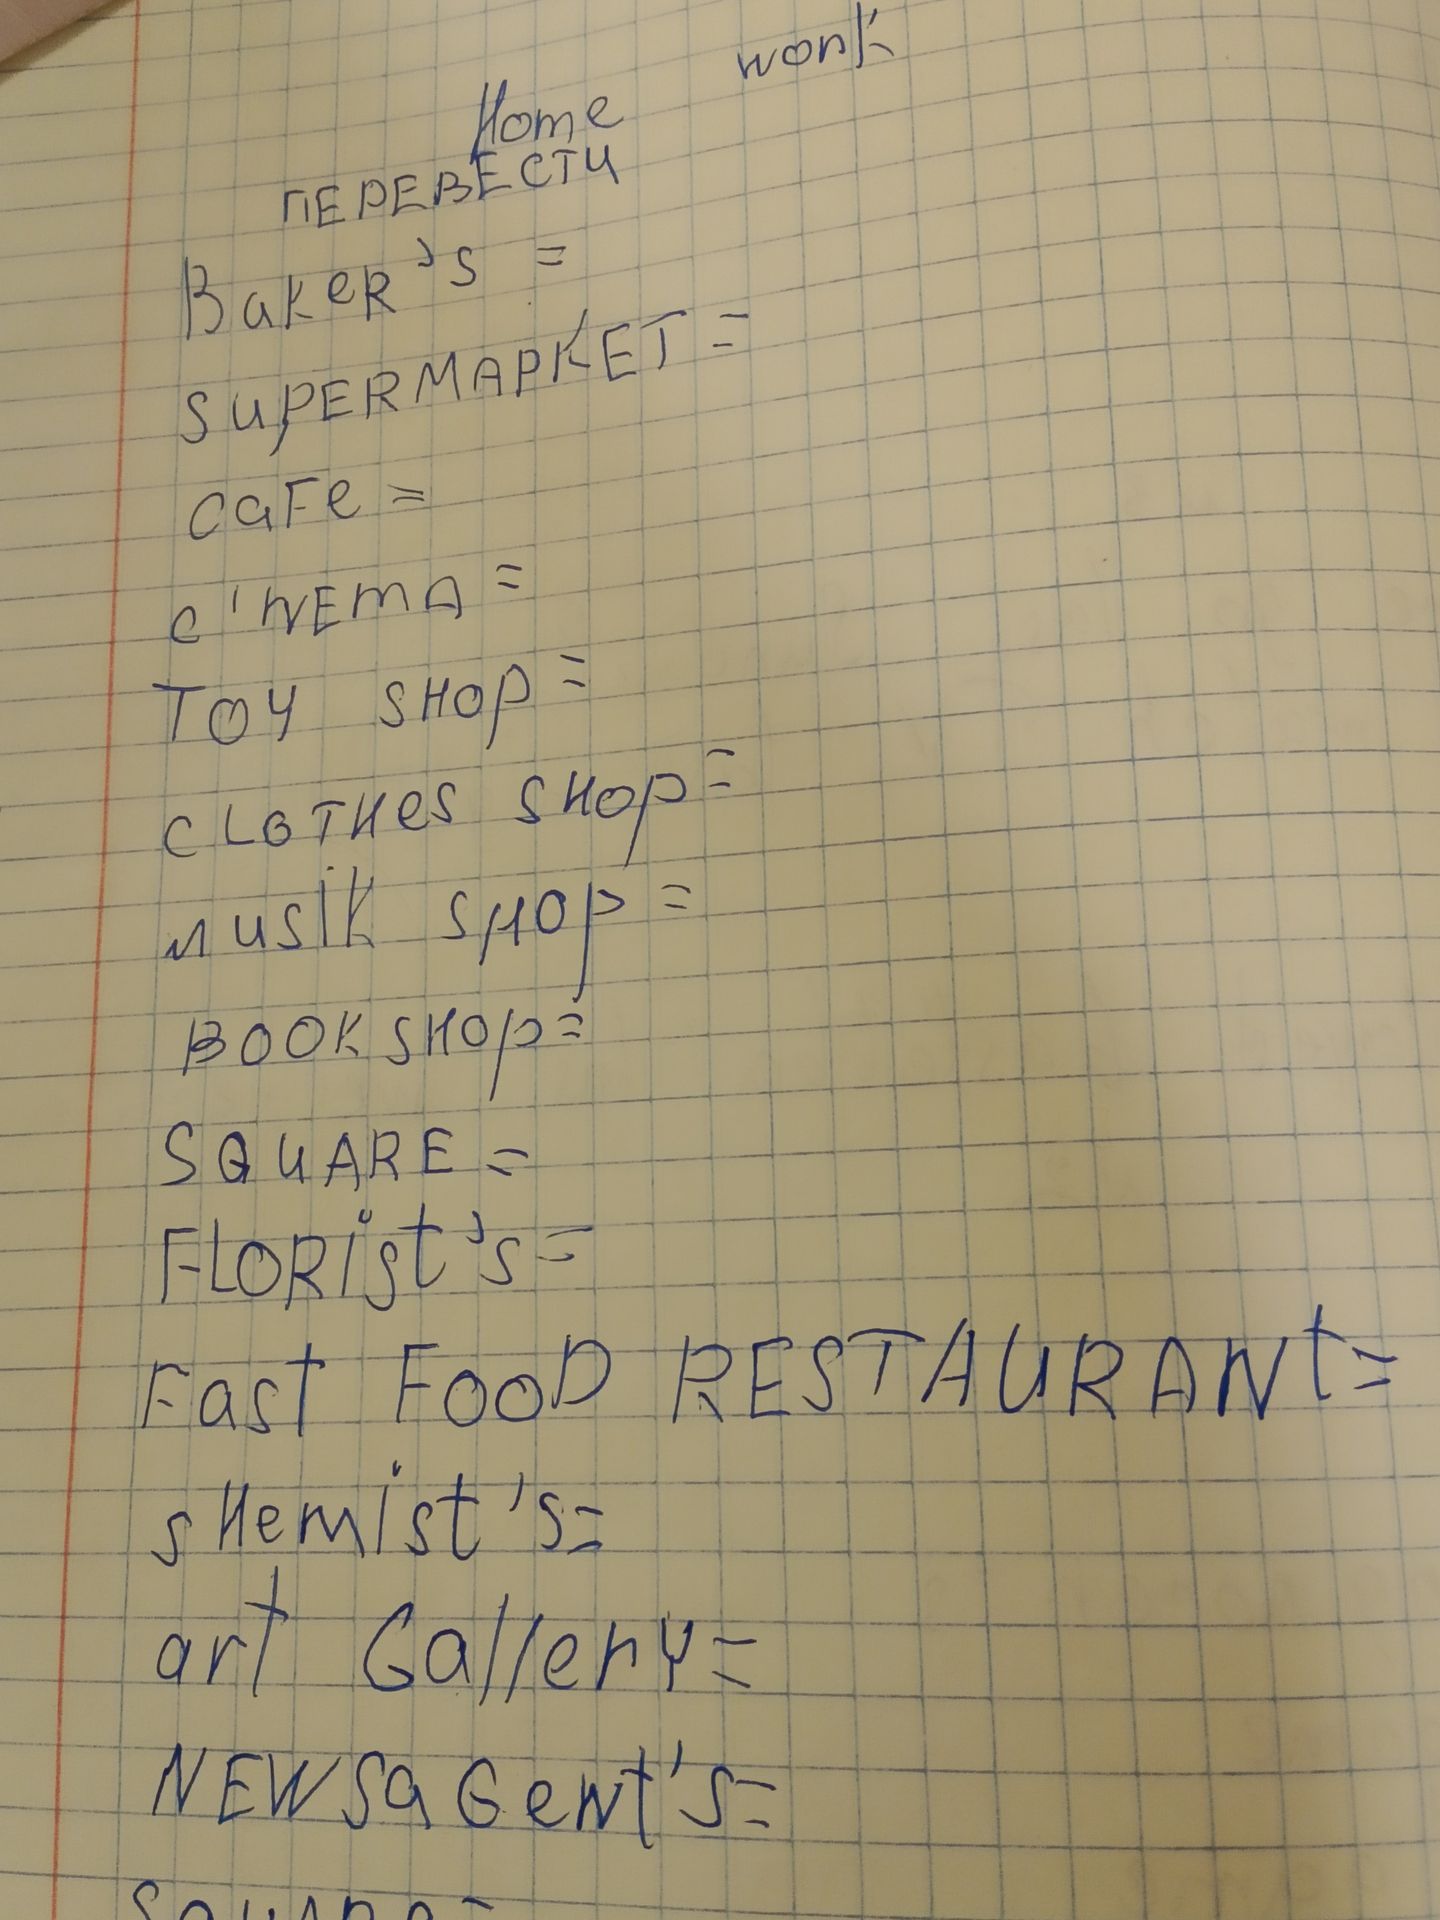 Home work
ПЕРЕВЕСТИ
Baker's =
SUPERMAPKET =
CaFe =
C'NEMA =
TOY SHOP =
CLOTHES SHOP =
MUSIK SHOP =
BOOKSHOP =
SQUARE =
FLORist's =
Fast FOOD RESTAURANt =
sHemist's =
art Gallery =
NEWSaGeNt's =